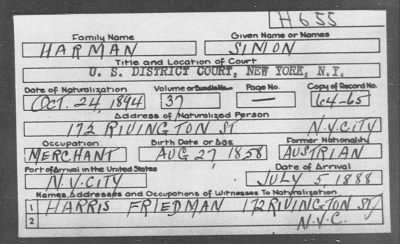 H655
Family Name Given Name or Names
HARMAN SIMON
Title and Location of Court
U. S. DISTRICT COURT, NEW YORK, N.Y.
Date of Naturalization Volume or Bundle No. Page No. Copy of Record No.
OCT. 24, 1894 37 — 64-65
Address of Naturalized Person
172 RIVINGTON ST N.Y. CITY
Occupation Birth Date or Age Former Nationality
MERCHANT AUG 27 1858 AUSTRIAN
Port of Arrival in the United States Date of Arrival
N.Y. CITY JULY 5 1888
Names, Addresses and Occupations of Witnesses To Naturalization
1 HARRIS FRIEDMAN 172 RIVINGTON ST
2 N.Y.C.